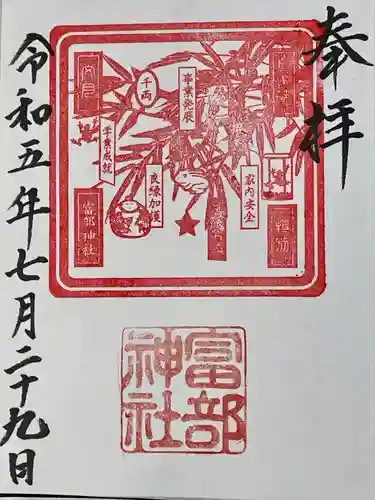 奉拝
千両
事業発展
学業成就
良縁加護
家内安全
富部神社
富部
神社
令和五年七月二十九日